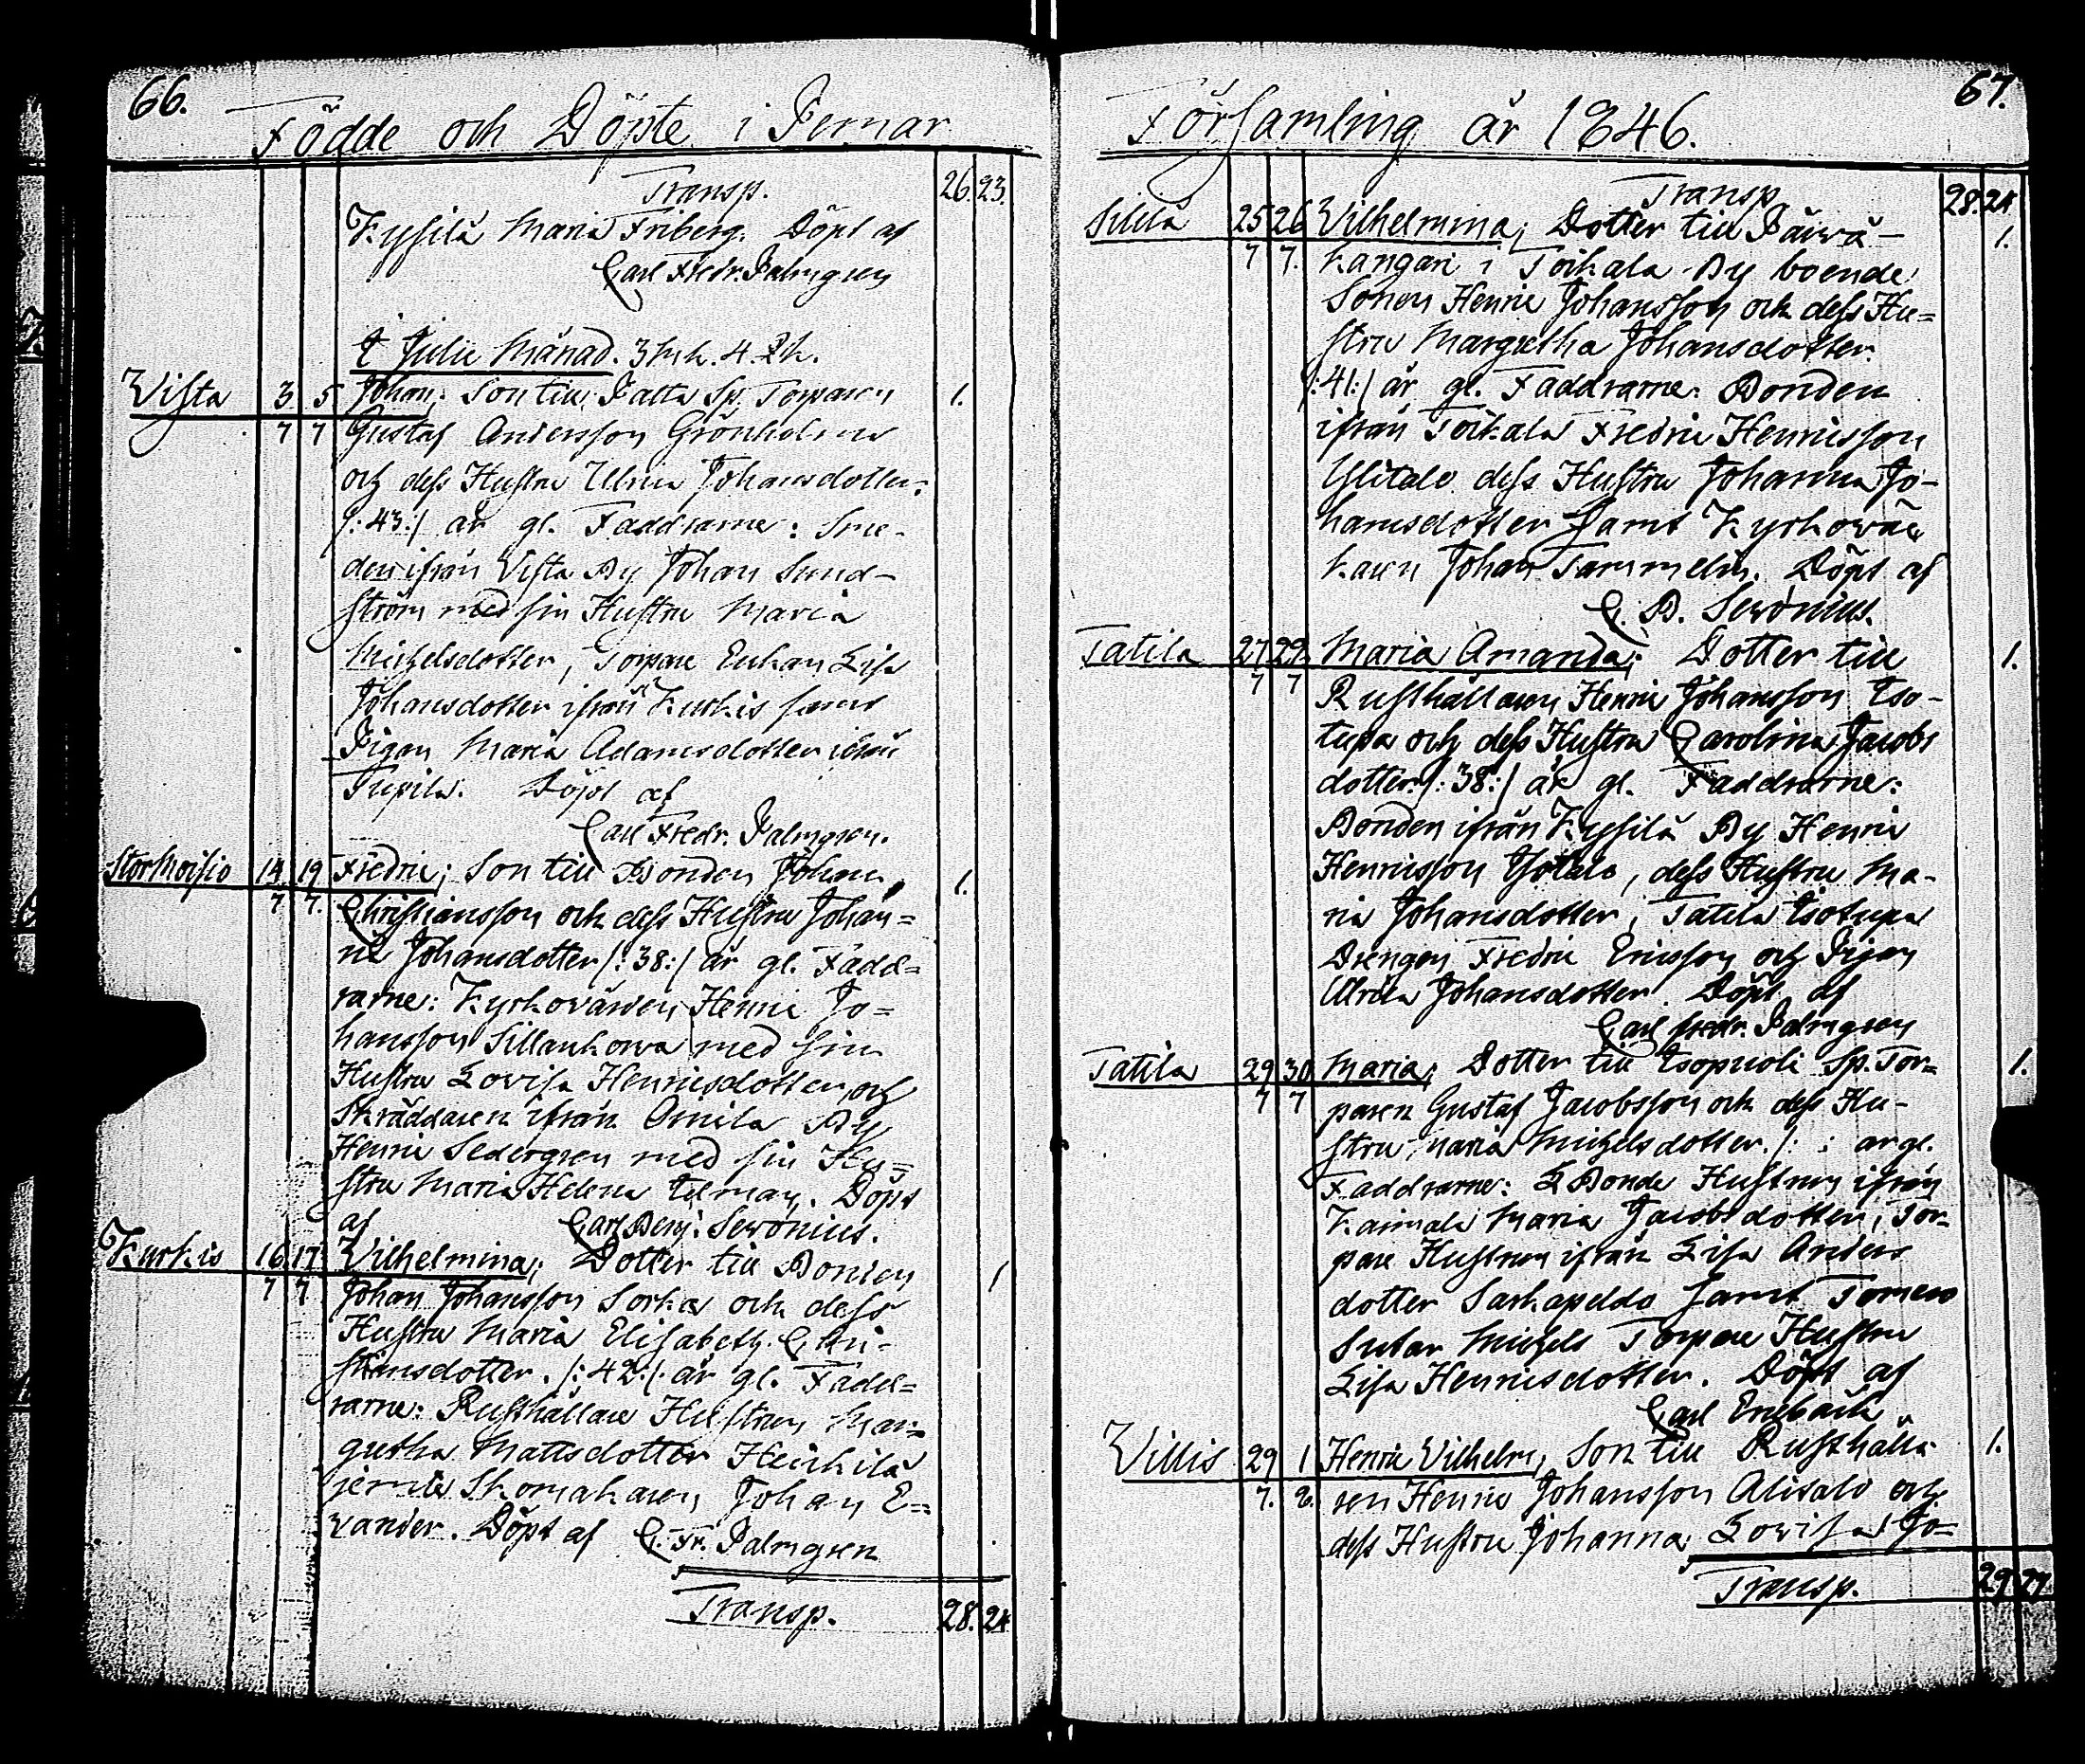 66.
Födde och Döpte i Pemar
Transp. 26. 23.
Kysilä Maria Friberg. Döpt af
Carl Fredr. Palmgren
I Julii Månad. 3 mk. 4. 2 k.
Vista 3 5 Johan; Son till Patta Sp. Torparen 1.
7 7 Gustaf Andersson Grönholm
och dess Hustru Ulrica Johansdotter.
/:43:/ år gl. Faddrarne: Sme-
den ifrån Vista By Johan Sund-
ström med sin Hustru Maria
Michelsdotter, Torpare Enkan Lisa
Johansdotter ifrån Kurkis samt
Pigan Maria Adamsdotter ifrån
Tupila. Döpt af
Carl Fredr. Palmgren.
Storhoisio 14. 19 Fredric; Son till Bonden Johan 1.
7 7. Christiansson och dess Hustru Johan=
na Johansdotter /:38:/ år gl. Fadd=
rarne: Kyrkovärden Henric Jo=
hansson Sillankorva med sin
Hustru Lovisa Henricsdotter, och
Skräddaren ifrån Omila By
Henric Sedergren med sin Hu=
stru Maria Helena Ekman. Döpt
af Carl Benj: Serönius.
Kurkis 16. 17 Vilhelmina; Dotter till Bonden 1
7 7 Johan Johansson Sorka och dess
Hustru Maria Elisabeth Chri-
stiansdotter. /:42:/ år gl. Fadd=
rarne: Rusthållare Hustrun Mar=
gretha Mattsdotter Heickilä
jemte Skomakaren Johan E=
vander. Döpt af C. Fr. Palmgren
Transp. 28. 24
67.
Församling år 1846.
Transp 28. 24
Sillilä 25 26 Vilhelmina; Dotter till Päivä- 1.
7 7. kangari i Toikala By boende
Sonen Henric Johansson och dess Hu=
stru Margretha Johansdotter.
/:41:/ år gl. Faddrarne: Bonden
ifrån Toikala Fredric Henricsson
Ylitalo dess Hustru Johanna Jo-
hansdotter samt Kyrkovär
Johan Tammelin. Döpt af
C. B. Serönius.
Tatila 27 29. Maria Amanda; Dotter till 1.
7 7 Rusthållaren Henric Johansson Iso-
tupa och dess Hustru Carolina Jacobs
dotter /:38:/ år gl. Faddrarne:
Bonden ifrån Kysilä By Henric
Henricsson Isotalo, dess Hustru Ma-
ria Johansdotter, Tatila Isotupa
Drengen Fredric Ericsson och Pigan
Ulrica Johansdotter. Döpt af
Carl Fredr. Palmgren
Tatila 29 30 Maria; Dotter till Isopuoli Sp. Tor= 1.
7 7 paren Gustaf Jacobsson och dess Hu-
stru Maria Michelsdotter. /: : år gl.
Faddrarne: Bonde Hustrun ifrån
Kaimala Maria Jacobsdotter, Tor-
pare Hustrun ifrån Lisa Anders
dotter Sarkapeldo samt
Michels Torpare Hustru
Lisa Henricsdotter. Döpt af
Carl Enebäck
Villis 29 1 Henric Vilhelm, Son till Rusthålla 1.
7. 8. ren Henric Johansson Alitalo och
dess Hustru Johanna Lovisa Jo=
Transp. 29 27